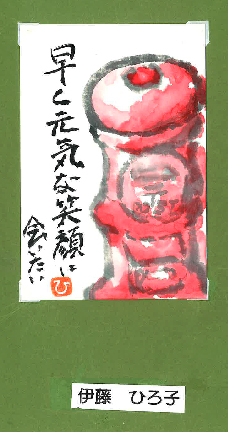 早く元気な笑顔に
会いたい
ひ
伊藤　ひろ子